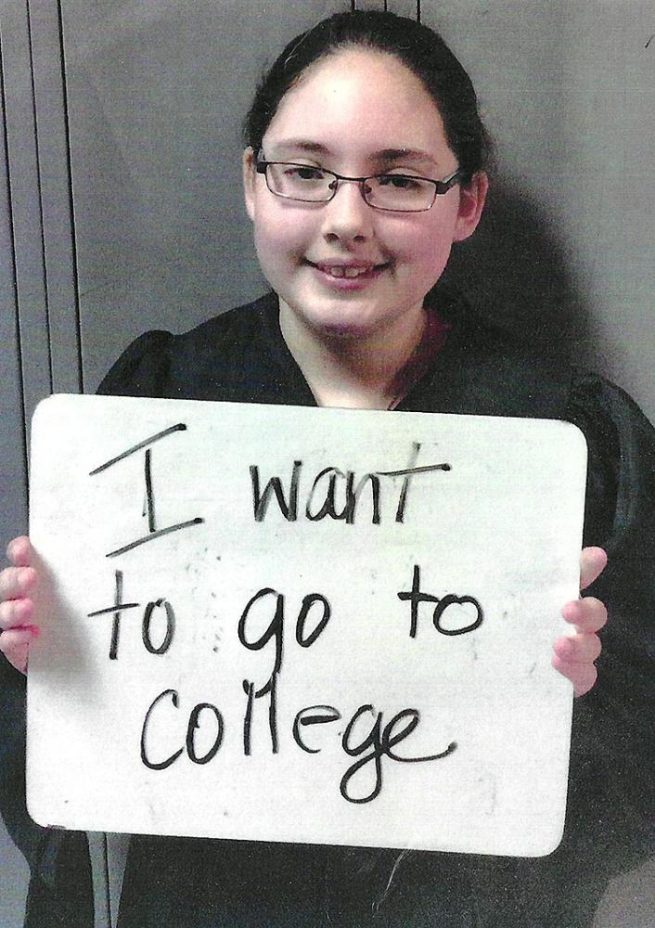 I want
to go to
college